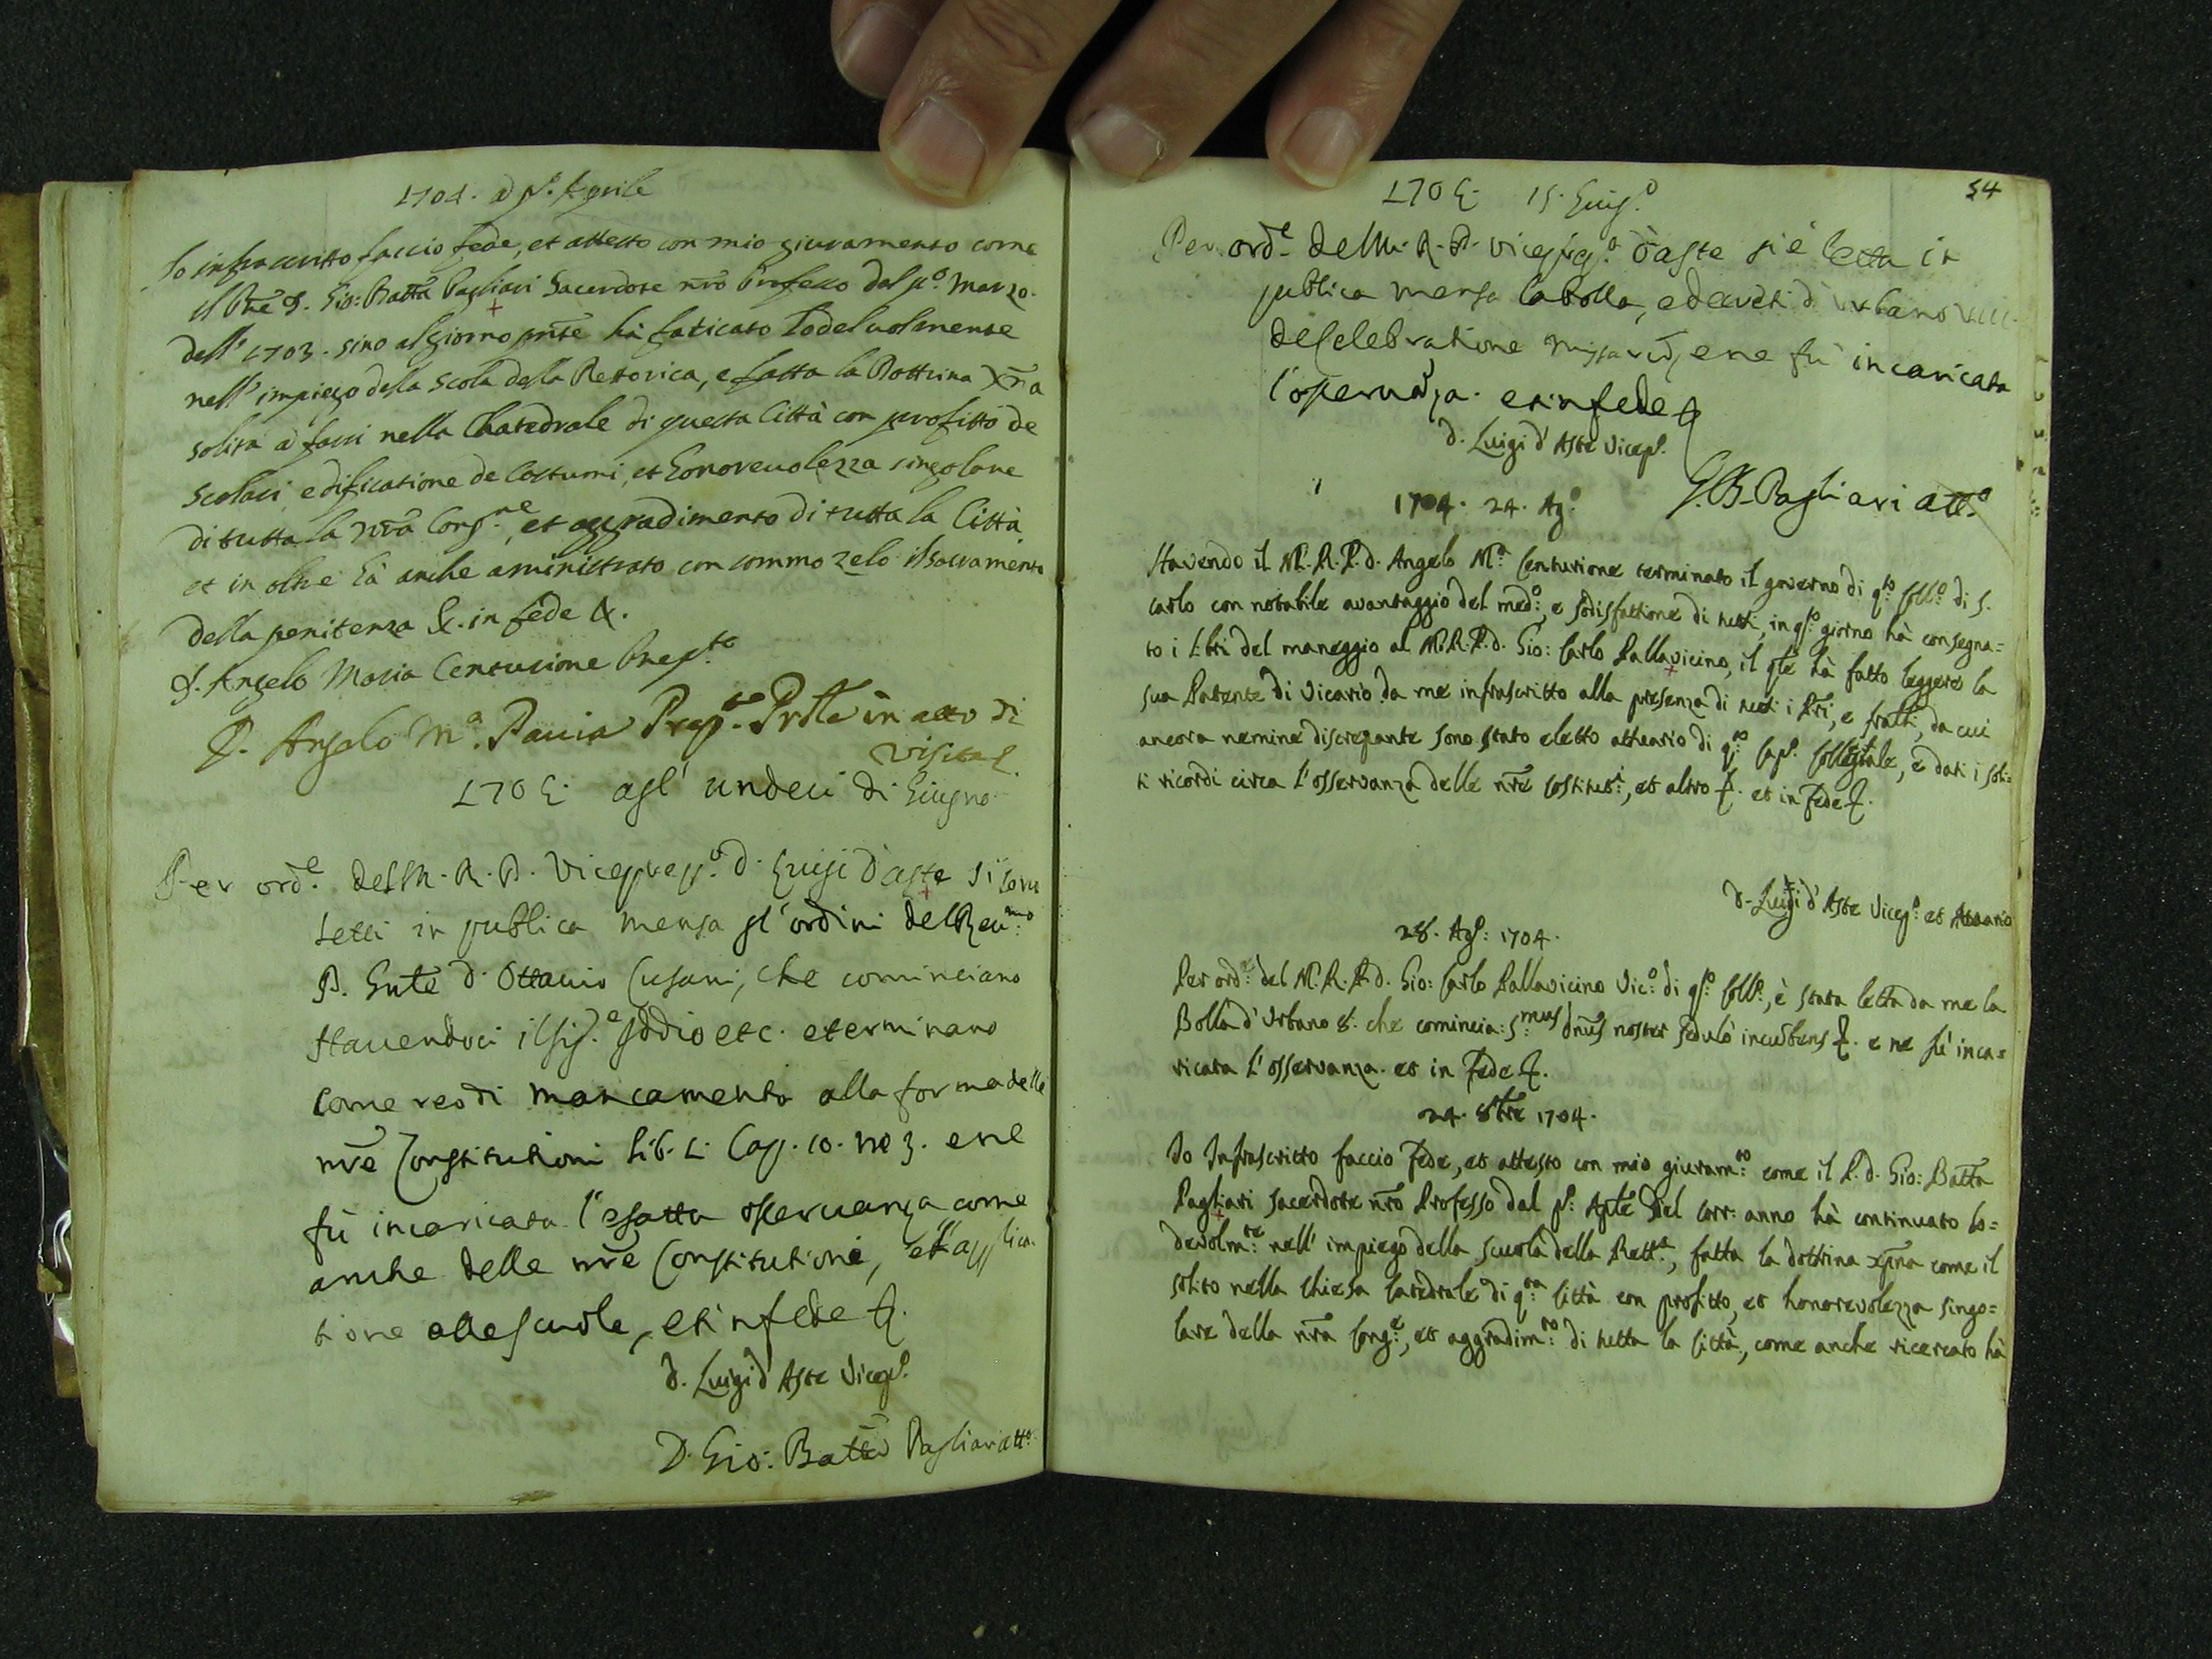 1704. a p.º Aprile
Io infrascritto faccio fede, et attesto con mio giuramento come
il Prē D. Gio: Battā Pagliari Sacerdote nr̄o Professo dal p.º Marzo
dell' 1703. sino al giorno pn̄te hà faticato lodeuolmente
nell' impiego della scola della Rettorica, e fatta la Dottrina Xn̄a
solita à farsi nella Chatedrale di questa Città con profitto de
scolari, edificatione de Costumi, et honoreuolezza singolare
di tutta la nr̄a Cong.ne, et aggradimento di tutta la Città
et in oltre hà anche aministrato con sommo zelo il sacramento
della penitenza &. in fede &.
D. Angelo Maria Centurione Prep.to
D. Angelo M.a Pauia Prep.to Prōle in atto di
visita
1704. agl' undeci di Giugno
Per ord.e del M. R. P. Viceprep.o d. Luigi d'aste si sono
letti in publica mensa gl'ordini del Reu.mo
P. Gn̄te d. Ottauio Cusani, che cominciano
Hauendoci il sig.e Iddio etc. e terminano
come reo di mancamento alla forma delle
nr̄e Constitutioni lib. 1. Cap. 10. nº 3. e ne
fù incaricata l'esatta osseruanza come
anche delle nr̄e Constitutioni, et applica-
tione alle scuole, et in fede &.
d. Luigi d'Aste Vicep.o
D. Gio: Battā Pagliari att.o
54
1704. 15. Giug.o
Per ord.e del M. R. P. viceprep.o d'aste si è letta in
publica mensa la bolla, e decreti di Vrbano VIII.
de celebratione missarū, e ne fù incaricata
l'osseruāza. et in fede &
d. Luigi d'Aste Vicep.o
G. B. Pagliari att.o
1704. 24. Ag.o
Havendo il M. R. P. d. Angelo M.a Centurione terminato il governo di q.to Coll.o di S.
Carlo con notabile avantaggio del med.o, e sodisfattione di tutti, in qs.o giorno hà consegna=
to i libri del maneggio al M. R. P. d. Gio: Carlo Pallavicino, il qle hà fatto leggere la
sua Patente di Vicario da me infrascritto alla presenza di tutti i Pri, e fratti, da cui
ancora nemine discrepante sono stato eletto attuario di q.to Cap.o Collegiale, e dati i soli=
ti ricordi circa l'osservanza delle nr̄e Costitut.i, et altro &. et in fede &.
d. Luigi d'Aste Vicep.o et Attuario
28. Ag.o: 1704.
Per ord.e del M. R. P. d. Gio: Carlo Pallavicino Vic.o di qs.o Coll.o, è stata letta da me la
Bolla d'Urbano 8. che comincia: S.mus dn̄us noster sedulò incumbens &. e ne fù inca=
ricata l'osservanza. et in fede &.
24. 8bre 1704.
Io Infrascritto faccio fede, et attesto con mio giuram.to come il P. d. Gio: Battā
Pagliari sacerdote nr̄o Professo dal p.o Aple del corr: anno hà continuato lo=
devolm.te nell' impiego della scuola della Rett.a, fatta la dottrina xp̄na come il
solito nella Chiesa Catedrale di q.ta Città con profitto, et honorevolezza singo=
lare della nr̄a Cong.e, et aggradim.to di tutta la Città, come anche ricercato hà